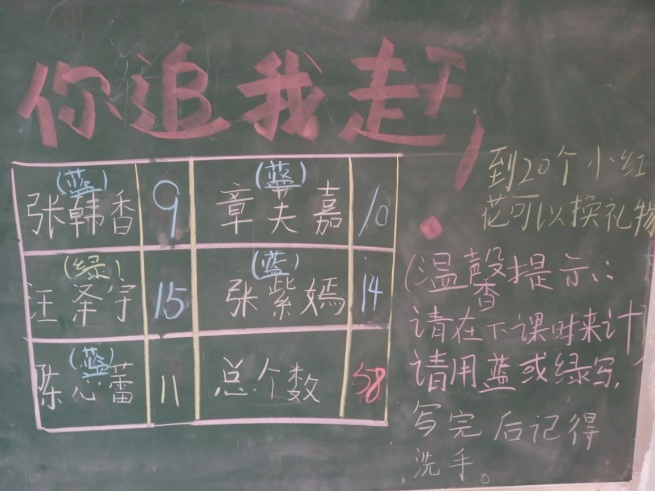 你追我赶!
(蓝) (蓝)
张韩香 9 章芙嘉 10
(绿) (蓝)
汪泽宇 15 张紫嫣 14
(蓝)
陈心蕾 11 总个数 58
到20个小红
花可以换礼物
(温馨提示:
请在下课时来计
请用蓝或绿写,
写完后记得
洗手。